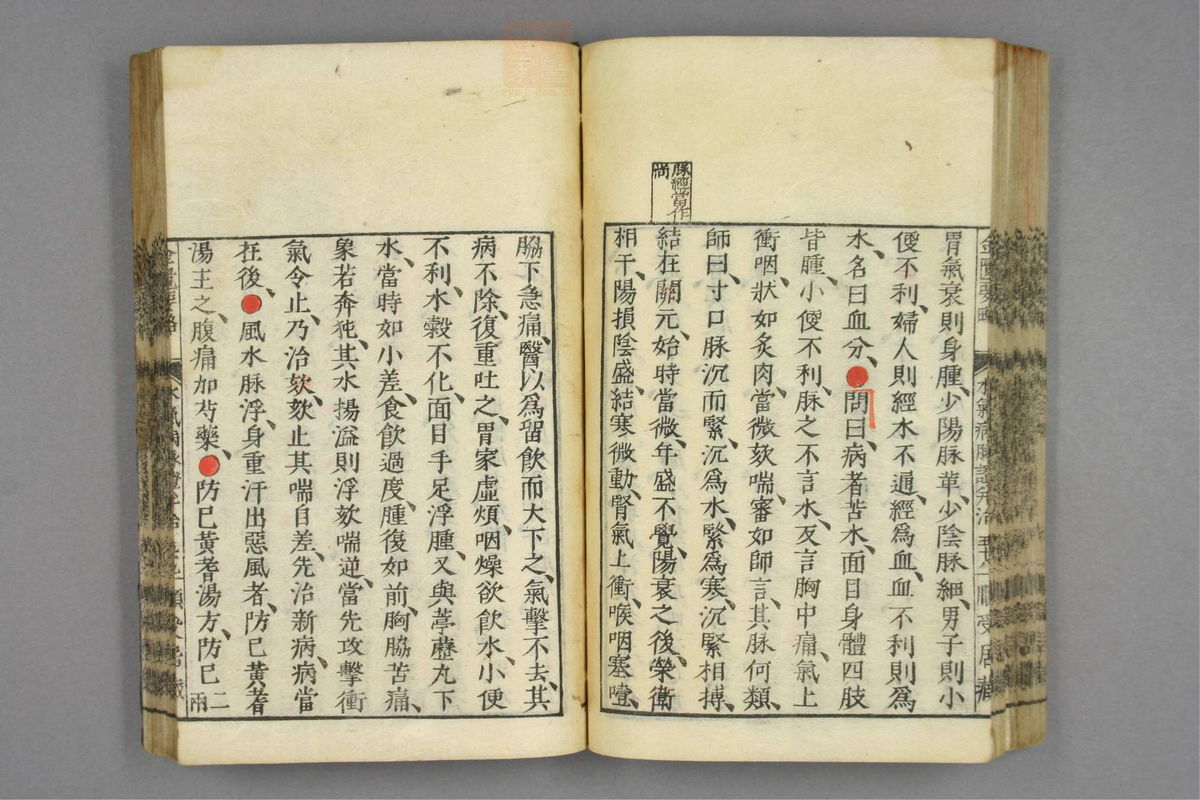 脉經當作
胃氣衰則身腫、少陽脉革、少陰脉細、男子則小
便不利、婦人則經水不通、經爲血、血不利則爲
水、名曰血分、問曰、病者苦水、面目身體四肢
皆腫、小便不利、脉之不言水、反言胸中痛、氣上
衝咽、狀如炙肉、當微欬喘、審如師言、其脉何類、
師曰、寸口脉沉而緊、沉爲水、緊爲寒、沉緊相搏、
結在關元、始時當微、年盛不覺、陽衰之後、榮衛
相干、陽損陰盛、結寒微動、腎氣上衝、喉咽塞噎、
脇下急痛、醫以爲留飲而大下之、氣擊不去、其
病不除、復重吐之、胃家虛煩、咽燥欲飲水、小便
不利、水穀不化、面目手足浮腫、又與葶藶丸下
水、當時如小差、食飲過度、腫復如前、胸脇苦痛、
象若奔豘、其水揚溢、則浮欬喘逆、當先攻擊衝
氣令止、乃治欬、欬止、其喘自差、先治新病、病當
在後、風水脉浮、身重汗出惡風者、防已黄耆
湯主之、腹痛加芍藥、防已黄耆湯方、防已二兩